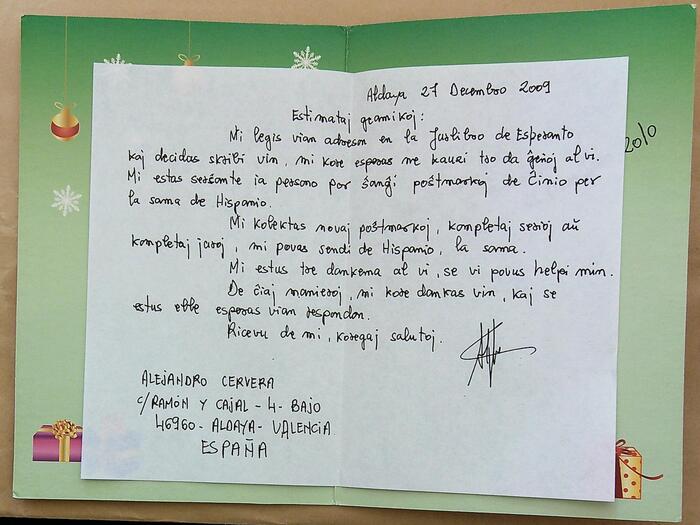 Aldaya 27 Decembro 2009
Estimataj geamikoj:
Mi legis vian adreson en la Jarlibro de Esperanto
kaj decidas skribi vin, mi kore esperas ne kauzi tro da ĝenoj al vi.
Mi estas serĉante ia persono por ŝanĝi poŝtmarkoj de Ĉinio per
la sama de Hispanio.
Mi kolektas novaj poŝtmarkoj, kompletaj serioj aŭ
kompletaj jaroj, mi povas sendi de Hispanio, la sama.
Mi estus tre dankema al vi, se vi povus helpi min.
De ĉiaj manieroj, mi kore dankas vin, kaj se
estus eble esperas vian respondon.
Ricevu de mi, koregaj salutoj.
ALEJANDRO CERVERA
C/RAMÓN Y CAJAL - 4 - BAJO
46960 - ALDAYA - VALENCIA
ESPAÑA
2010